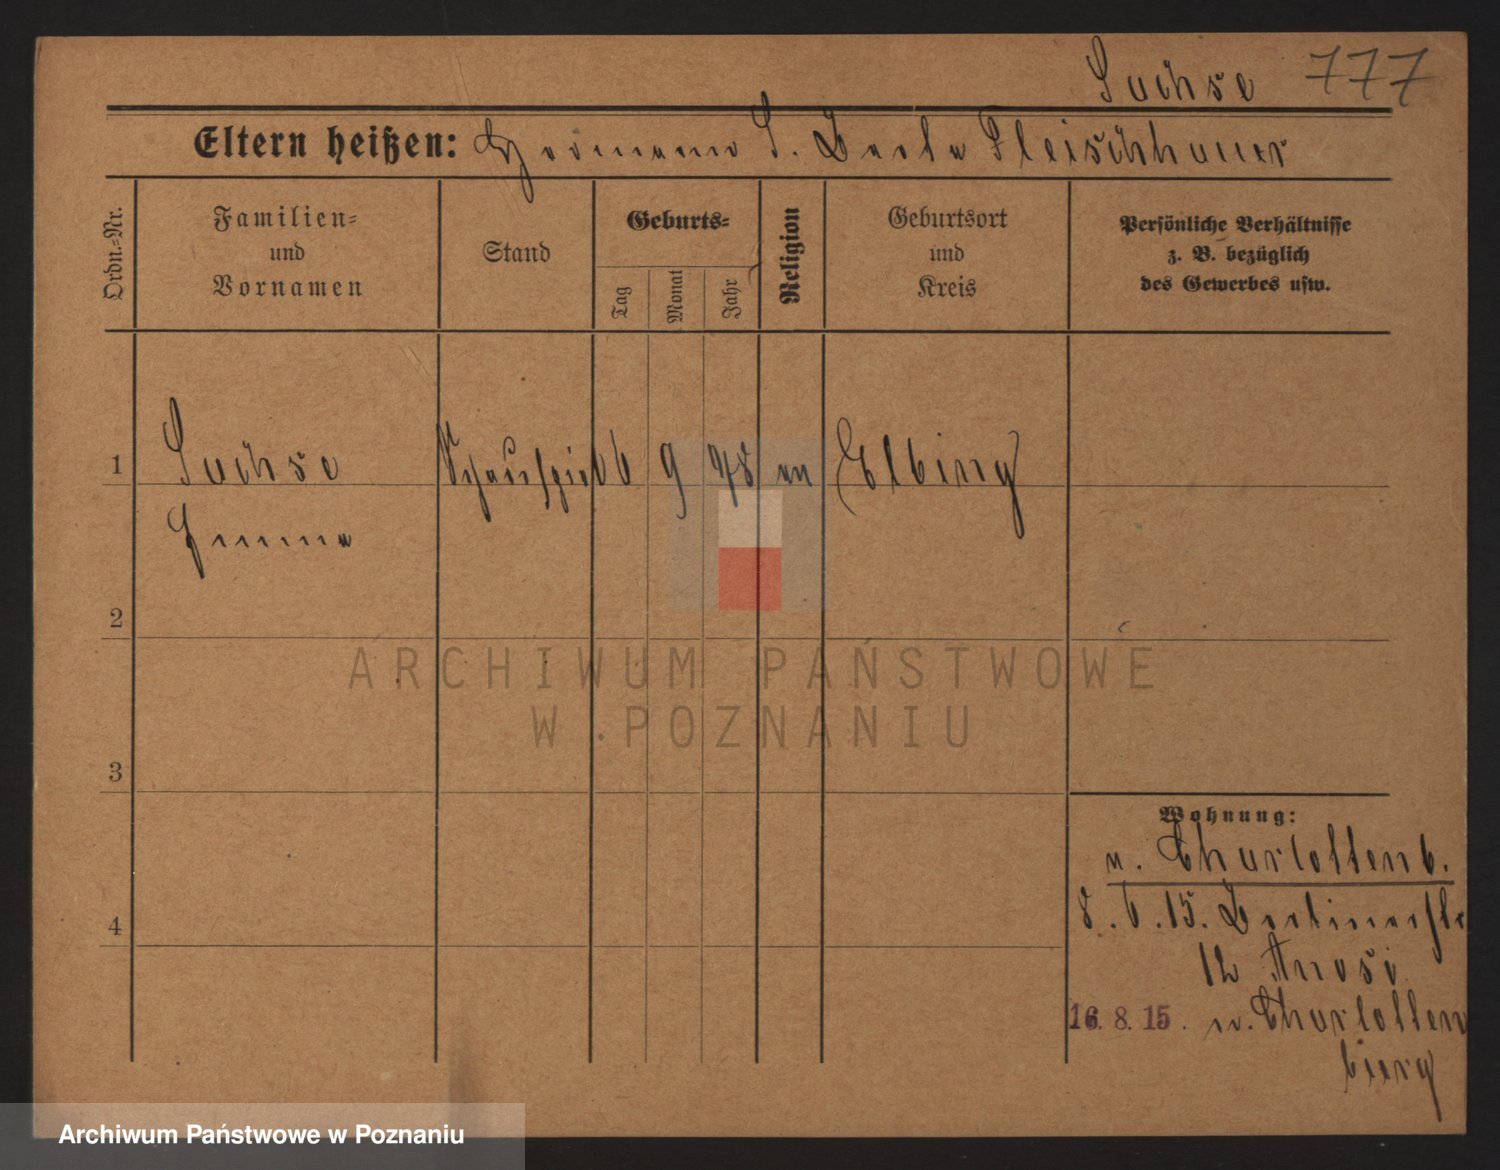 Sachse 777
Eltern heißen: Hermann S. Berta Fleischhauer
Ordn.-Nr.
Familien-
und
Vornamen
Stand
Geburts-
Tag
Monat
Jahr
Religion
Geburtsort
und
Kreis
Persönliche Verhältnisse
z. B. bezüglich
des Gewerbes usw.
1 Sachse Schauspiel 6 9 98 Elbing
Emma
2
3
4
ARCHIWUM PAŃSTWOWE
W POZNANIU
Wohnung:
n. Charlottenb.
8.6.15. Berlinerstr
12
16.8.15. n. Charlotten
burg
Archiwum Państwowe w Poznaniu